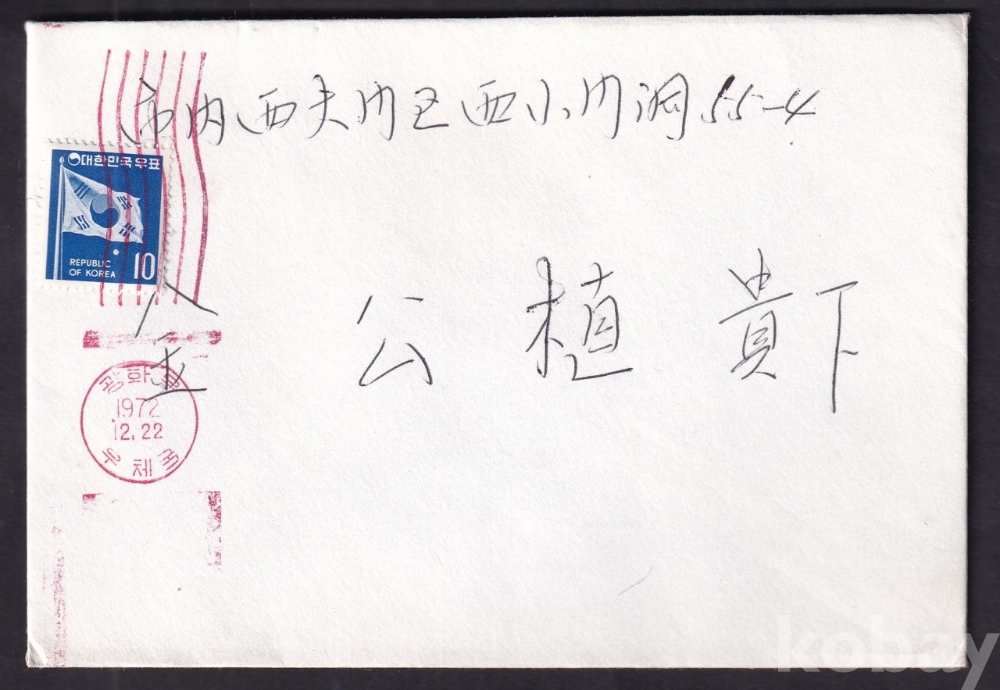 市内西大门区西小门洞 55-4
대한민국우표
REPUBLIC
OF KOREA
10
金公植 貴下
광화문
1972
12.22
우체국
kobay